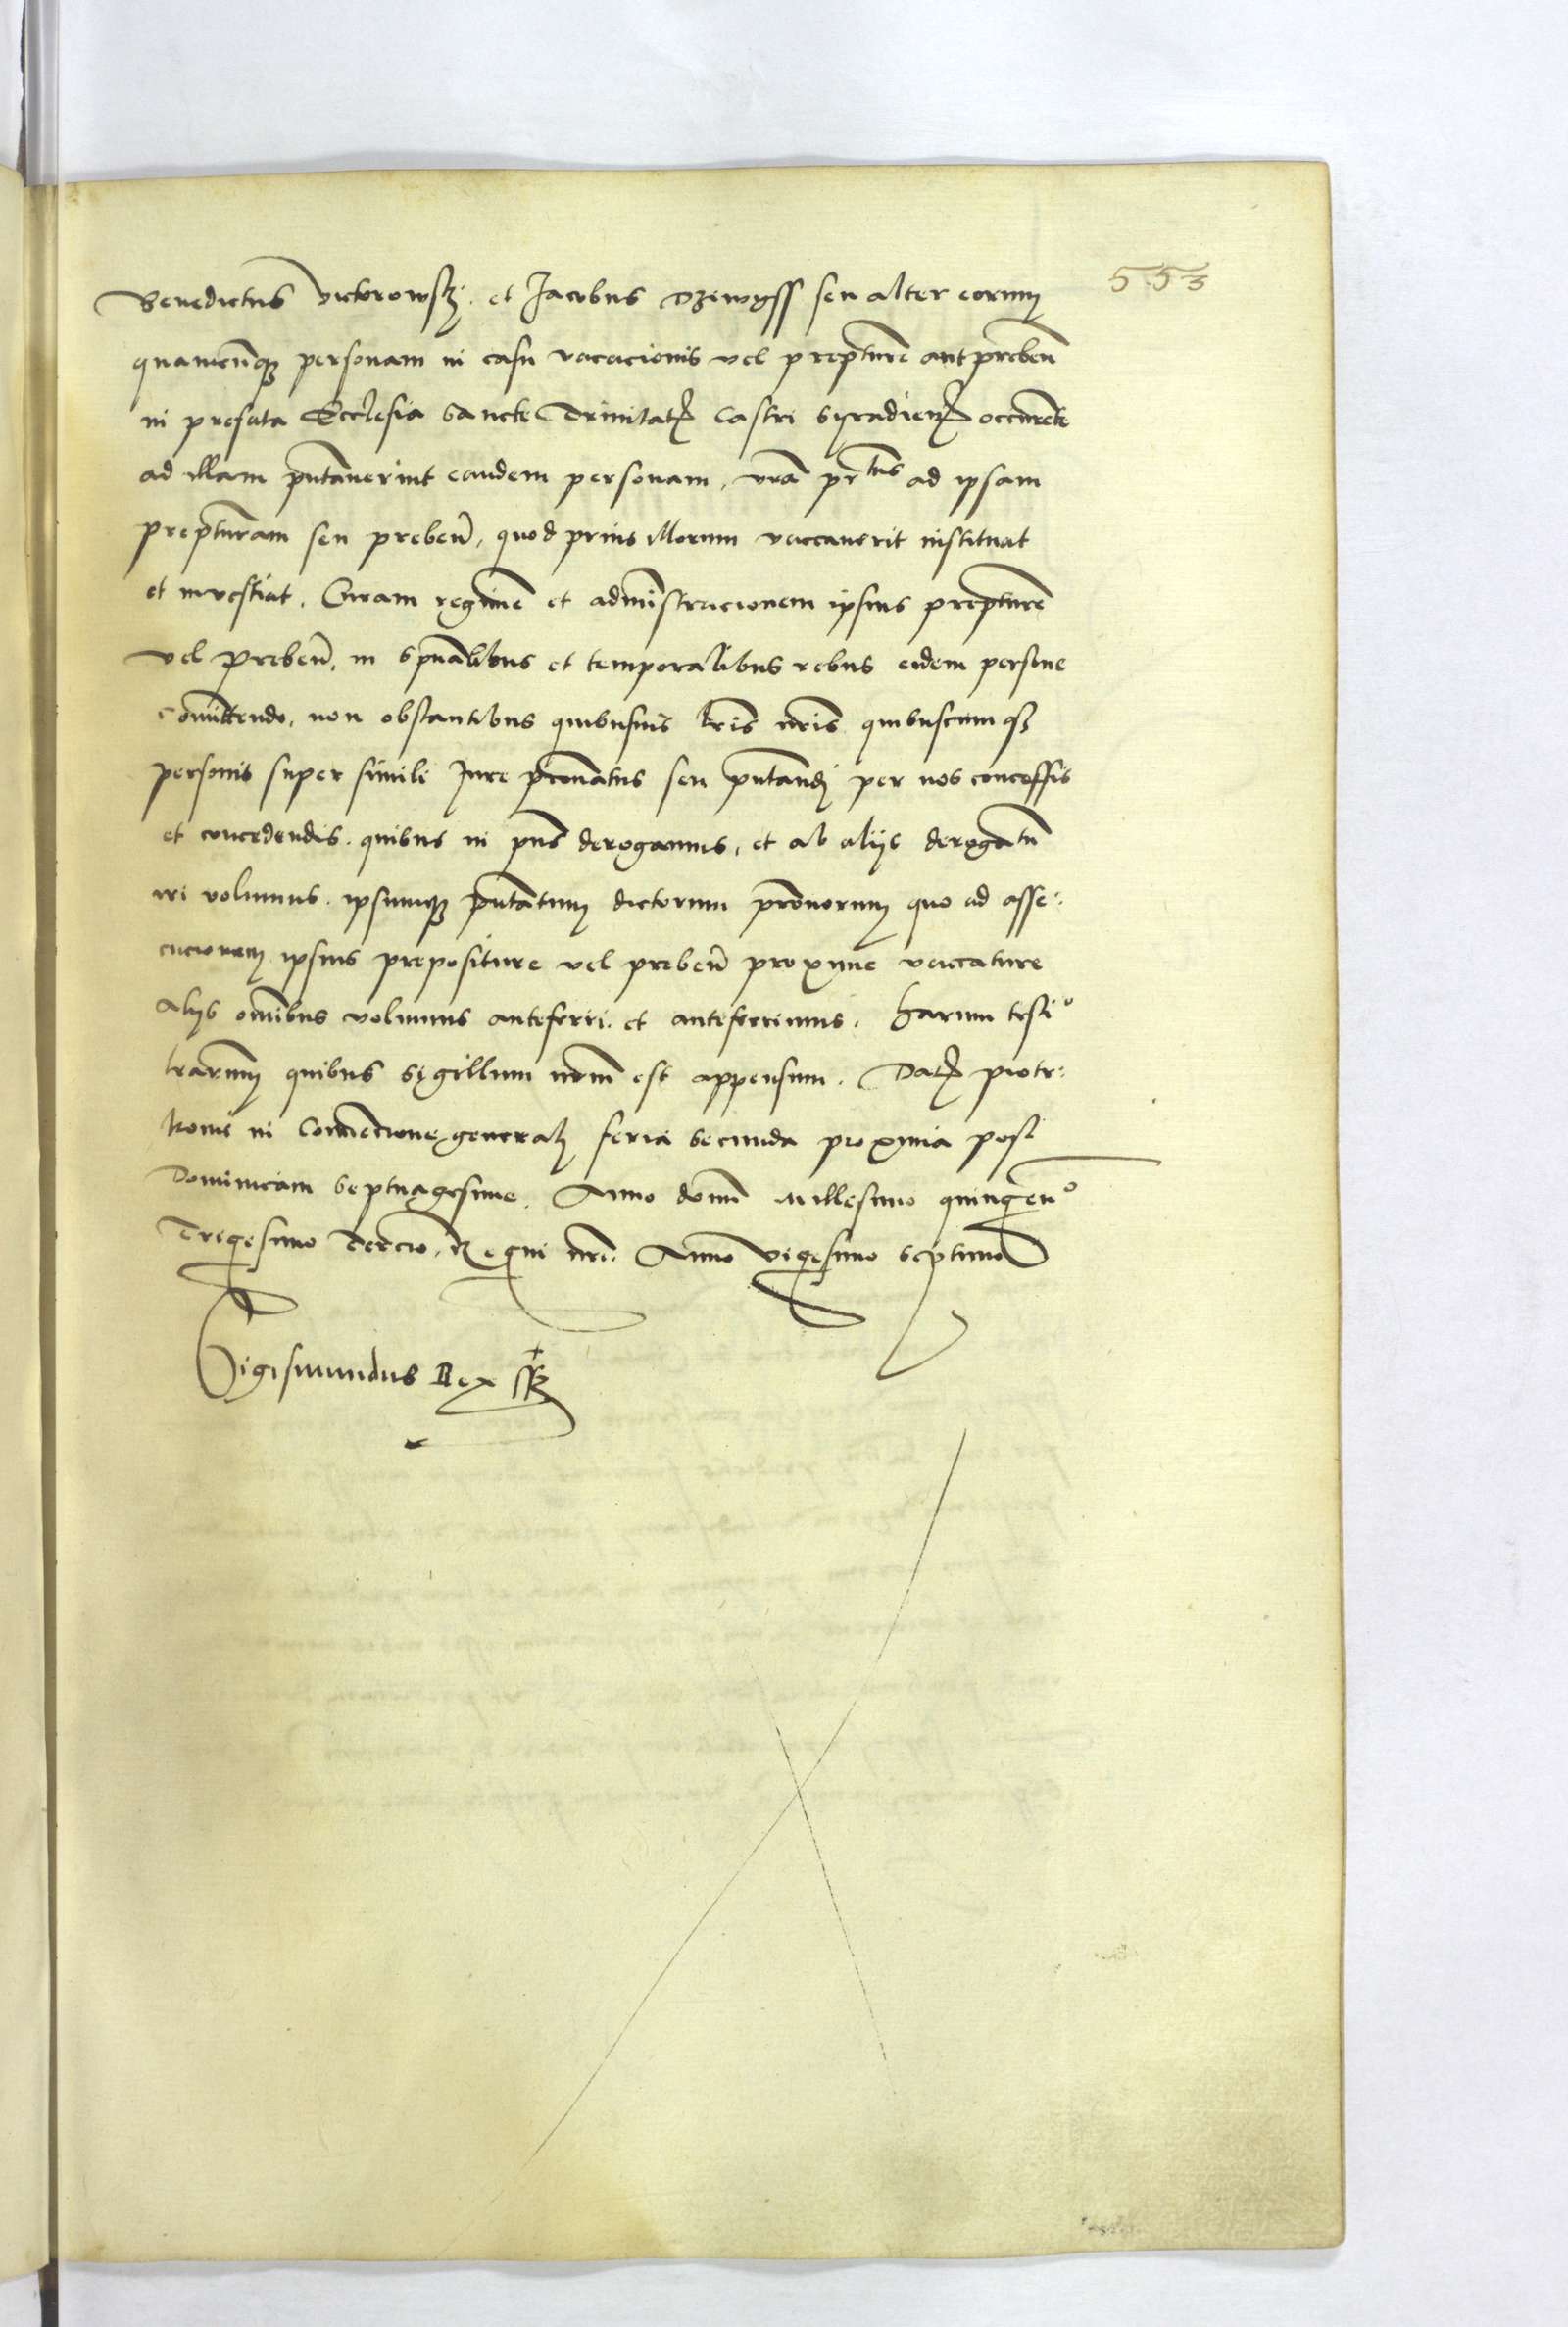 553
Benedictus Victorowskj. et Jacobus Dzewyss seu alter eorum
quamcunqz personam in casu vacacionis vel preptture aut preben
in prefata Ecclesia Sancte Trinitatis Castri Syradien occurente
ad illam pntauerint eandem personam, vra prtus ad ipsam
prepturam seu preben, quod prius illorum vaccauerit instituat
et inuestiat. Curam regimen et administracionem ipsius prepture
vel preben. in spualibus et temporalibus rebus eidem persone
comittendo, non obstantibus quibusuis lris nris quibuscumqz
personis super simili Jure pronatus seu pntandj per nos concessis
et concedendis. quibus in pns derogamus, et ab aliis derogatu
iri volumus. ipsumqz pntatum dictorum pronorum quo ad asse:
cucionem ipsius prepositure vel preben proxime vaccature
aliis omibus volumus anteferri. et anteferrimus. Harum testio
lrarum quibus sigillum nrm est appensum. Dat piotr:
kouie in Conuencione generali feria secunda proxima post
Dominicam septuagesime. Anno domi Millesimo quingeno
Trigesimo Tercio. Regni nri. Anno vigesimo septimo
Sigismundus Rex sst